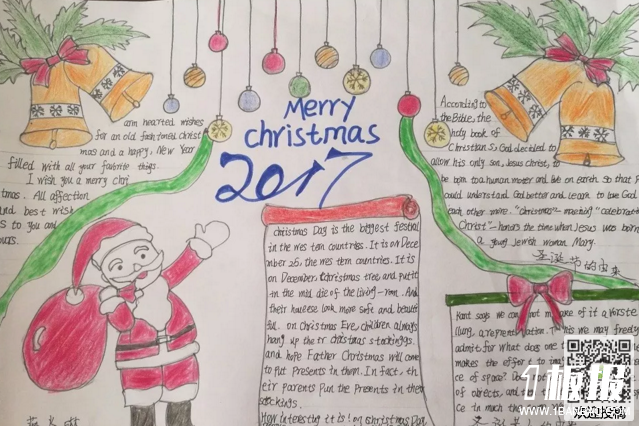 Merry
christmas
2017
arm hearted wishes
for an old fashioned christ
mas and a happy, New Year
filled with all your favorite things
I wish you a merry christ
tmas. All affection
and best wish
s to you and
ours.
christmas Day is the biggest festival
in the wes ten countries. It is on Dece
mber 25, the wes tern countries. It is
on December, Christmas tree and put it
in the mid dle of the living-room. And
their houese look more soft and beauti
ful. on Christmas Eve, children always
hang up the tr christmas stockings
and hope Father Christmas will come
to put Presents in them. In fact, the
eir parents put the Presents in their
stockings.
How interesting it is! on christmas Day
According to
the Bible, the
holy book of
Christian s, God decided to
allow his only son, Jesus christ, to
be born to a human moter and live on earth so that P
could understand God better and learn to love God
each other more. "Christmas"-meaning "celebratio
Christ"-honors the time when Jesus was born
a young Jewish woman, Mary.
圣诞节的由来
Kant says we cannot make of it a Vorste
llung, a representation. This we may freely
admit for what does one
makes the effort to
ce of space? Does
of objects, and
ce in much the
1板报
WWW.1BANBAO.COM